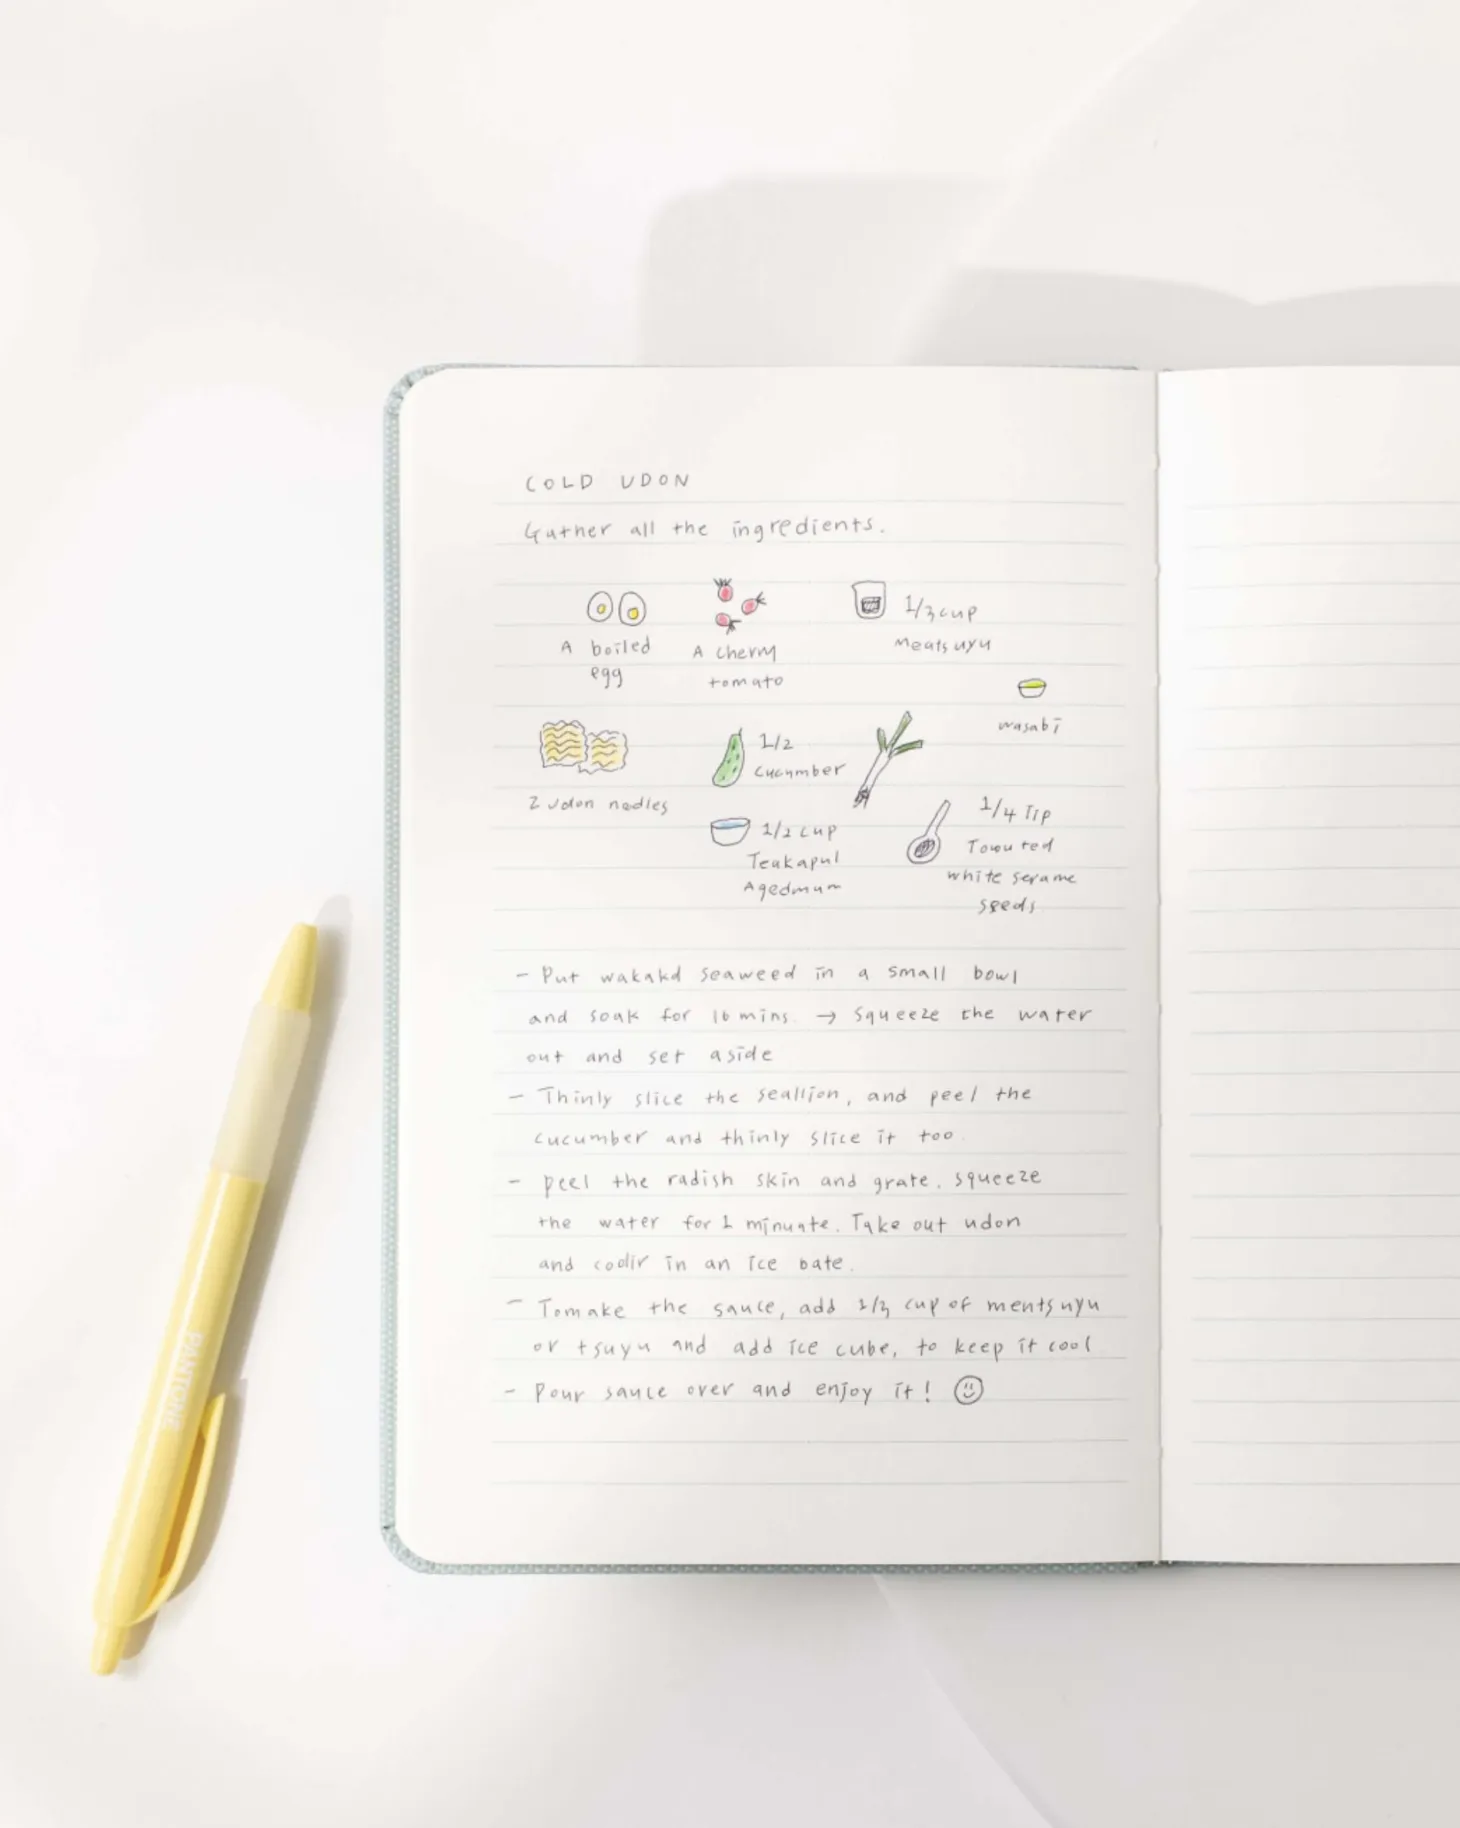 COLD UDON
Gather all the ingredients.
A boiled
egg
A cherry
tomato
1/3 cup
Meatsuyu
wasabi
2 udon nodles
1/2
cucumber
1/2 cup
Teakapul
Agedmum
1/4 Tip
white serame
seeds
- Put wakakd seaweed in a small bowl
and soak for 10 mins. → squeeze the water
out and set aside
- Thinly slice the seallion, and peel the
cucumber and thinly slice it too.
- peel the radish skin and grate. squeeze
the water for 1 minuate. Take out udon
and coolir in an ice bate.
- Tomake the sauce, add 1/3 cup of mentsuyu
or tsuyu and add ice cube, to keep it cool
- Pour sauce over and enjoy it!
PANTONE